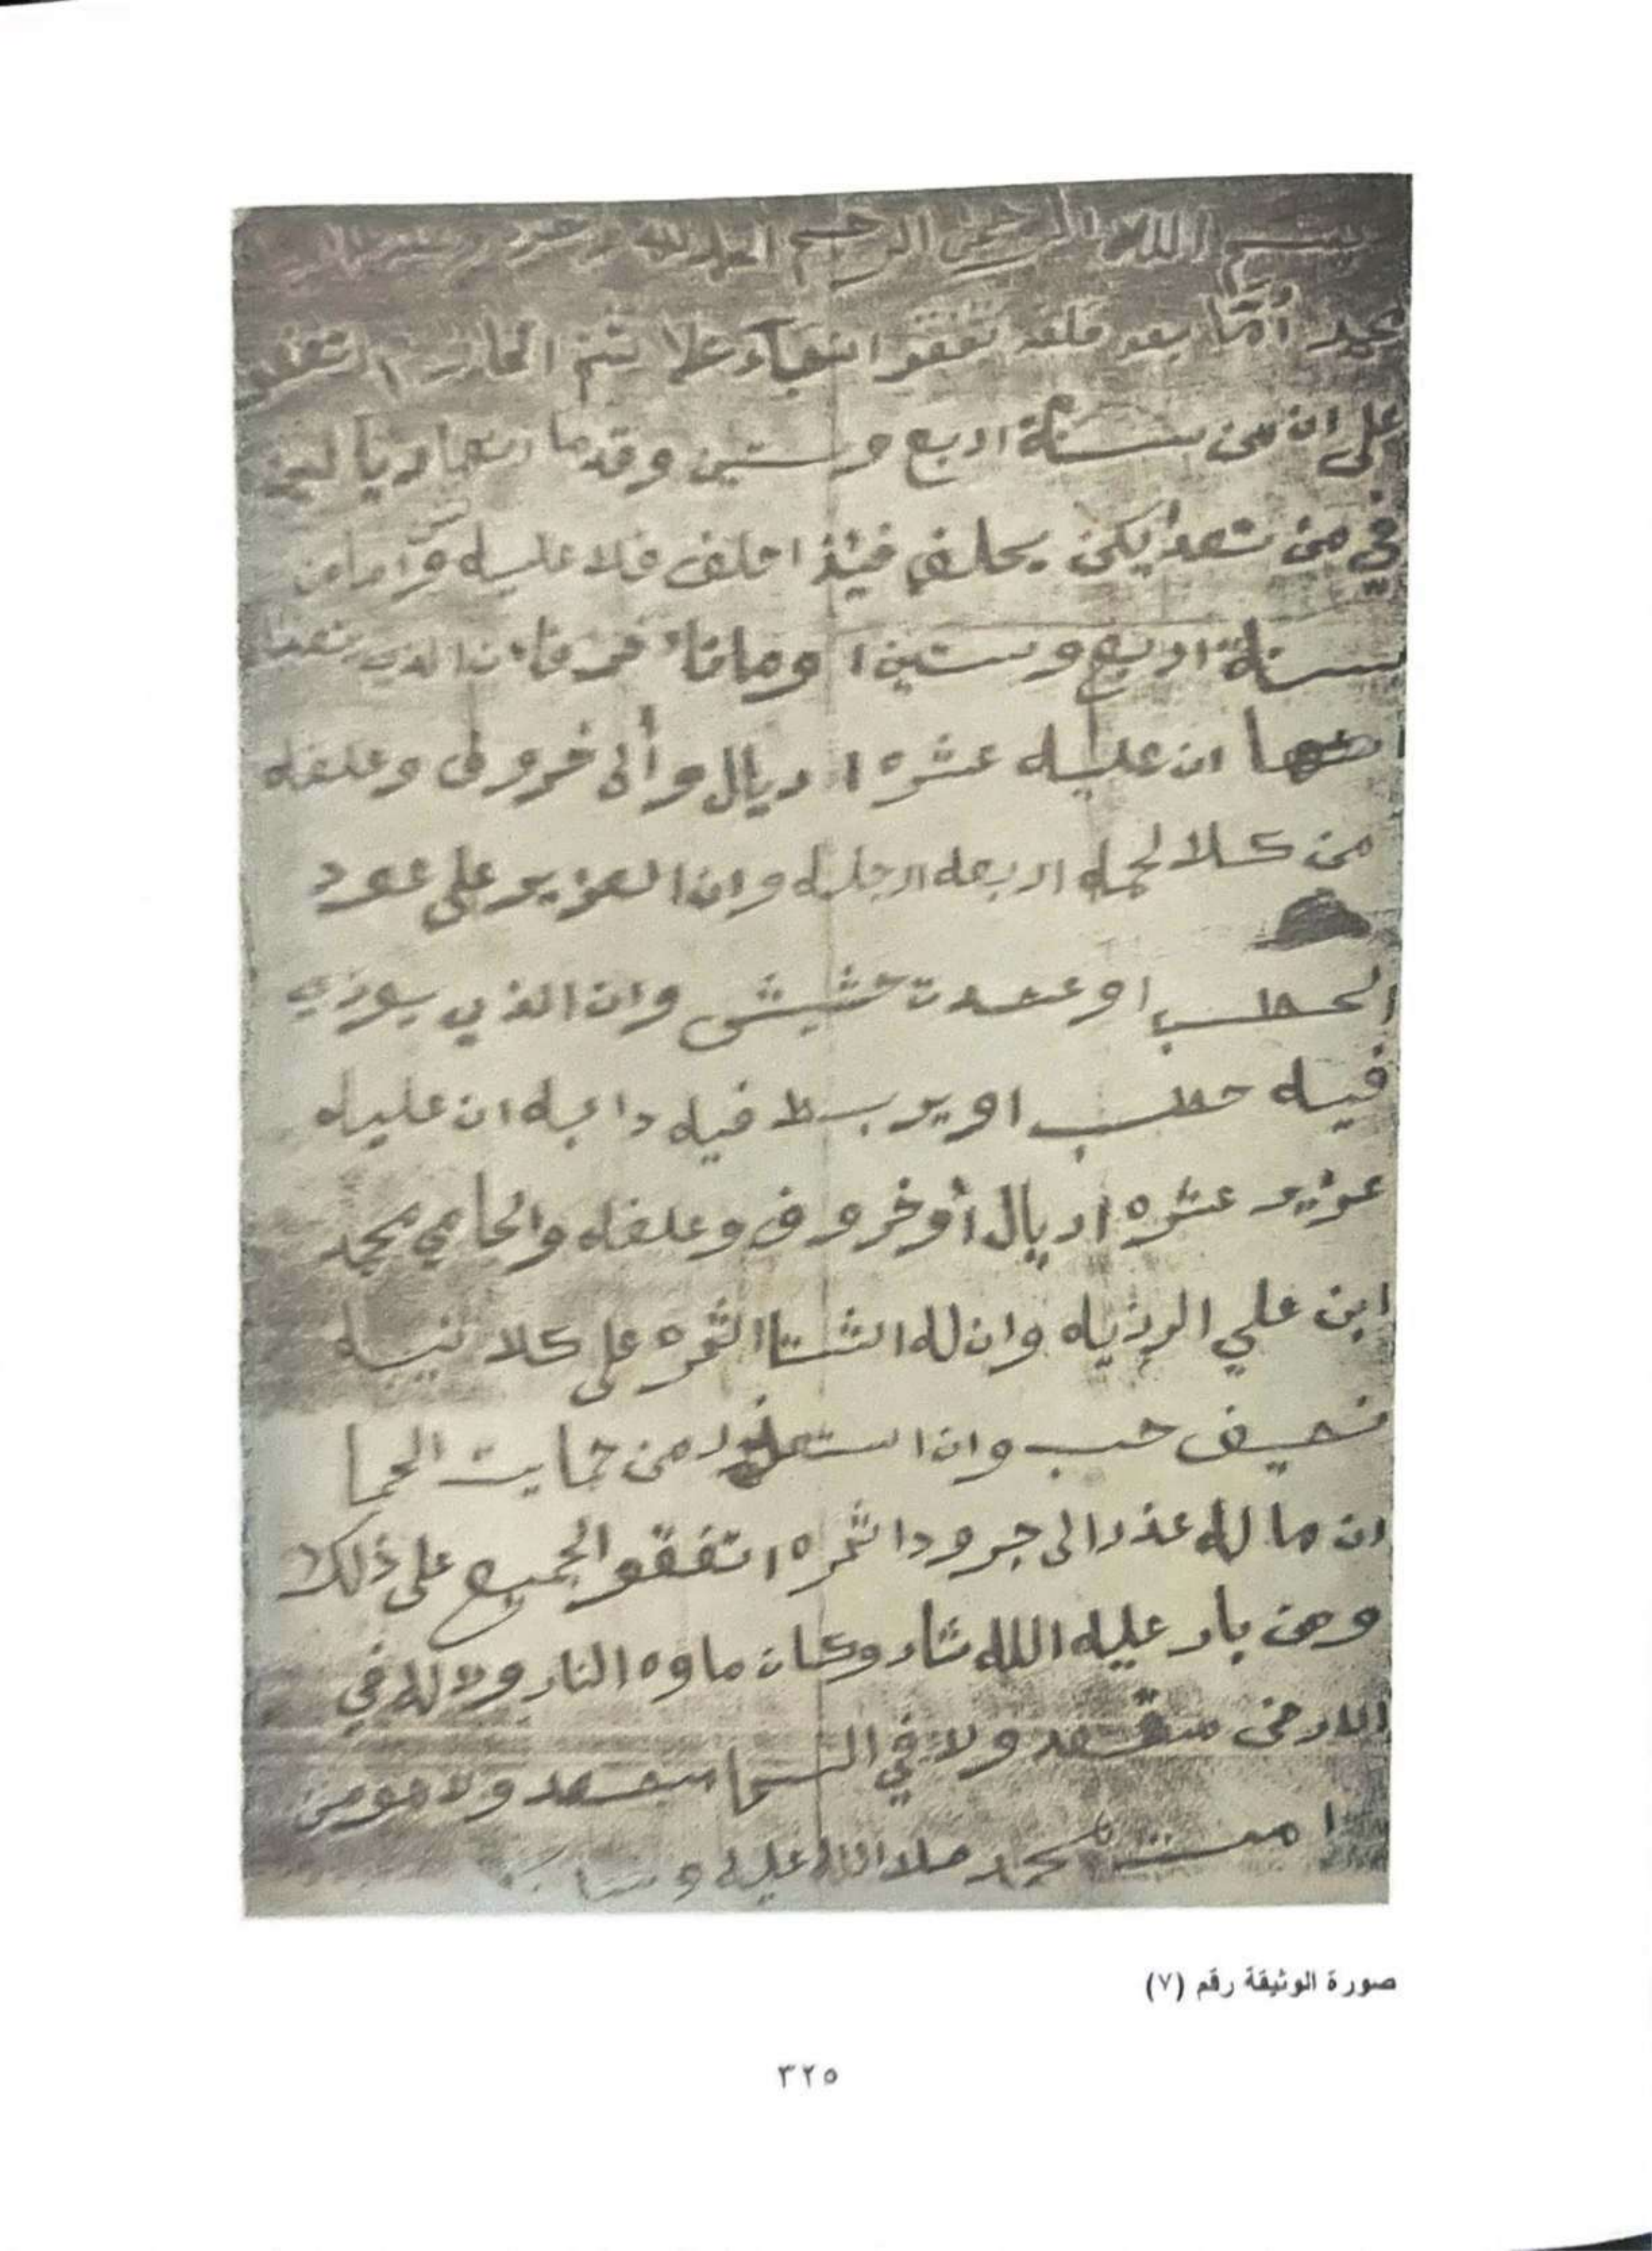 بسم الله الرحمن الرحيم الحمد لله وحده
محمد أمّا بعد فلقد تفقو علا اتفقو
على ان من سنة اربع وستين وقدما
في من تعدا يكن يحلف فيذا حلف فلا عليه واما من
سنة اربع وستين ا وماتا خر فا ن الذي يتعدا
ان عليه عشره اريال وألى خروفى وعلفه
من كلا لحمه اربعه ارجله وان العزير على عود
الحطب او عقدت حشيش وان الذي يوزي
فيه حطب او يربط فيه دابه ان عليه
عزير عشره اريال أو خروف وعلفه والحامي محمد
ابن علي الرزياه وان له الشتا الثمره على كلا نيبه
نصيف حب وان استعذر من حمايت الحما
ان ما له عذر الى جرودا ثمره اتفقو الجميع على ذلك
ومن بار عليه الله ثار وكان ماوه النار ولا له في
الارض مقعد ولا في السما مصعد ولا هو من
امت محمد صلا الله عليه وسلم
صورة الوثيقة رقم (٧)
٣٢٥